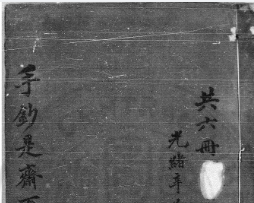 共六冊
光緒辛
手鈔是齋百